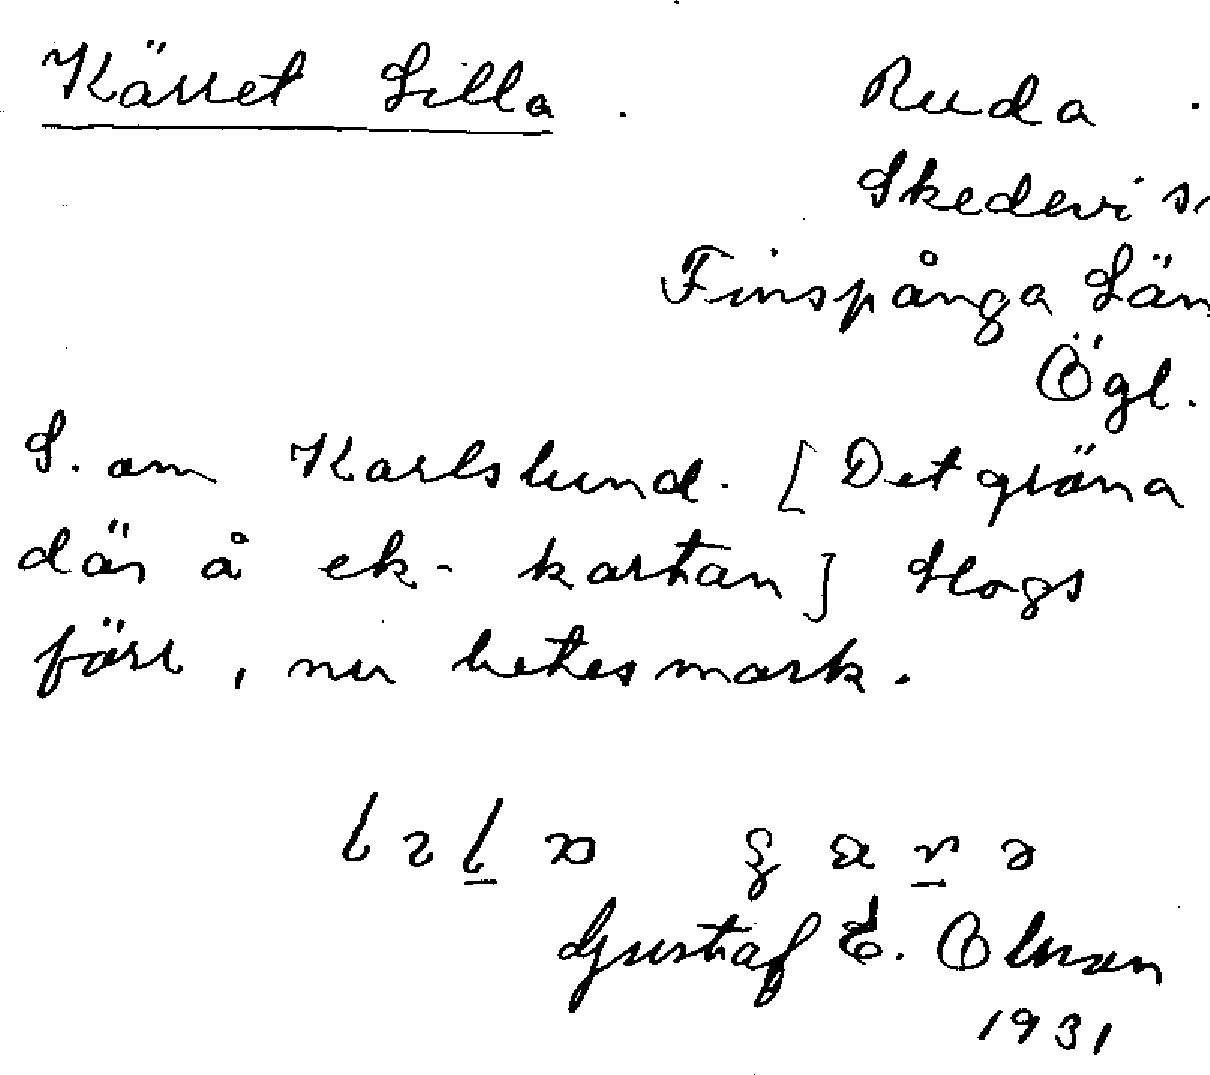 Kärret Lilla. Ruda.
Skedevi s.
Finspånga Län
Ögl.
S. om Karlslund. [Det gröna
där å ek-kartan] Slogs
förr, nu betesmark.
Gustaf E. Olsson
1931